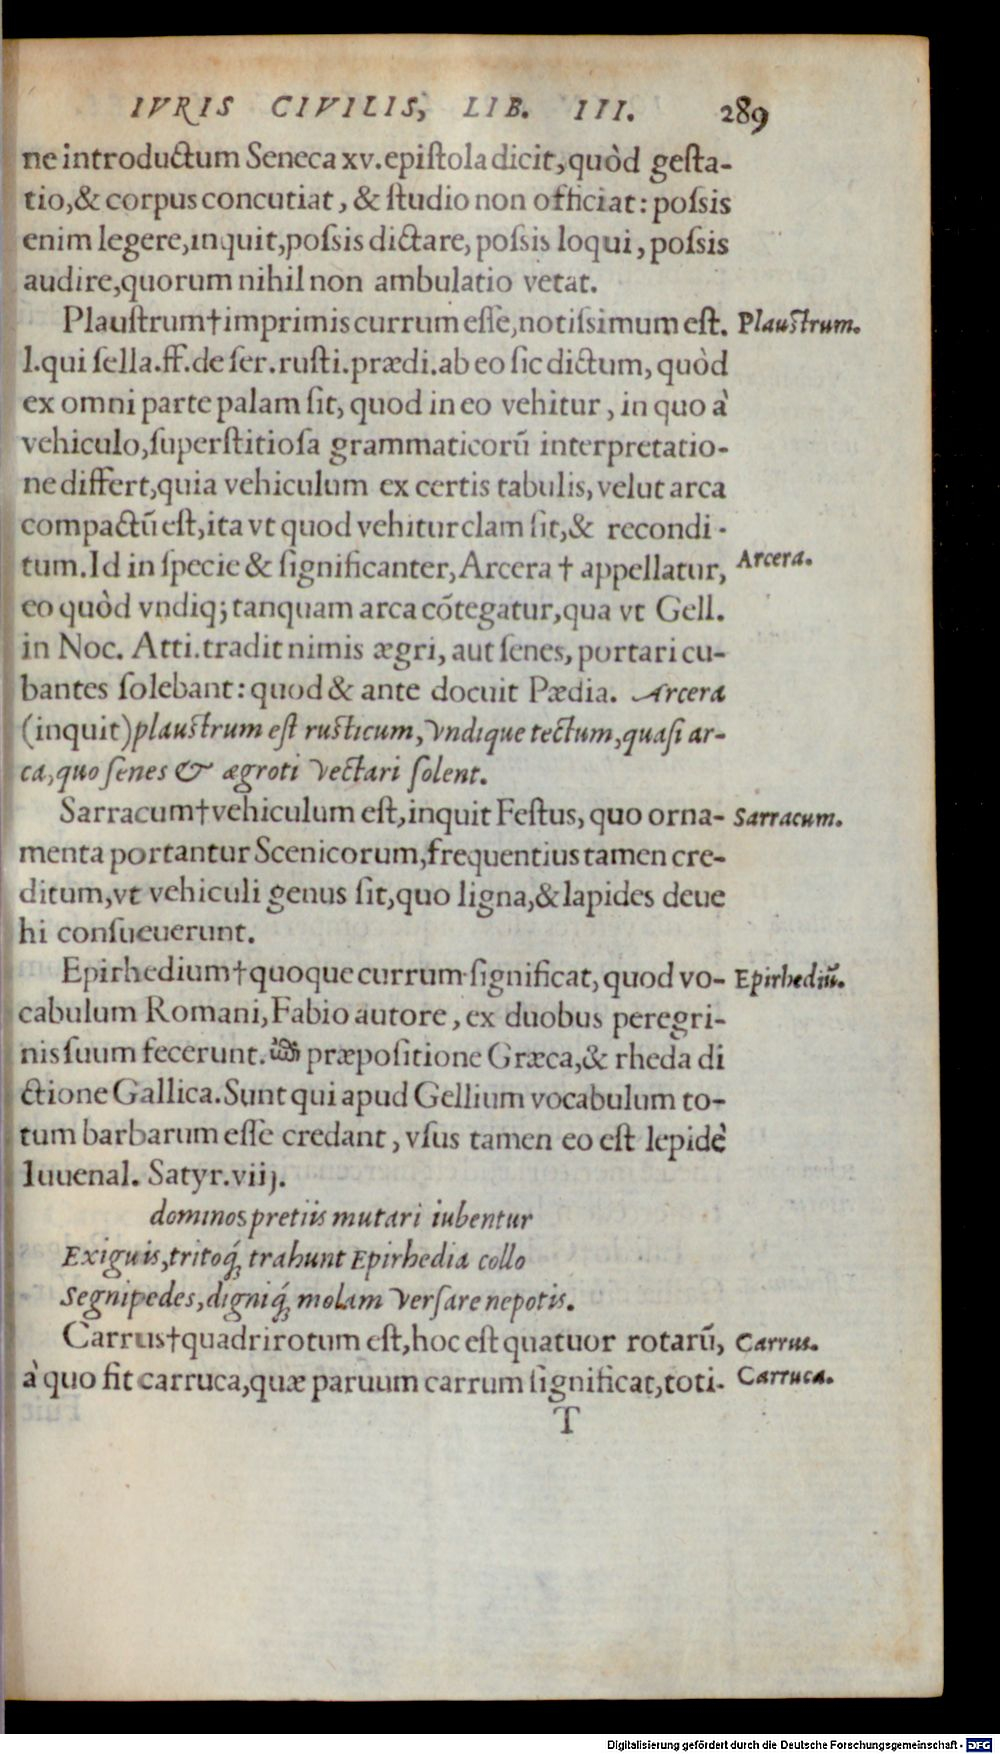 IVRIS CIVILIS, LIB. III. 289
ne introductum Seneca xv. epistola dicit, quòd gesta-
tio, & corpus concutiat, & studio non officiat: possis
enim legere, inquit, possis dictare, possis loqui, possis
audire, quorum nihil non ambulatio vetat.
Plaustrum† imprimis currum esse, notissimum est. Plaustrum.
l. qui sella. ff. de ser. rusti. prædi. ab eo sic dictum, quòd
ex omni parte palam sit, quod in eo vehitur, in quo à
vehiculo, superstitiosa grammaticorū interpretatio-
ne differt, quia vehiculum ex certis tabulis, velut arca
compactū est, ita vt quod vehitur clam sit, & recondi-
tum. Id in specie & significanter, Arcera † appellatur, Arcera.
eo quòd vndiq; tanquam arca cōtegatur, qua vt Gell.
in Noc. Atti. tradit nimis ægri, aut senes, portari cu-
bantes solebant: quod & ante docuit Pædia. Arcera
(inquit) plaustrum est rusticum, vndique tectum, quasi ar-
ca, quo senes & ægroti vectari solent.
Sarracum† vehiculum est, inquit Festus, quo orna- Sarracum.
menta portantur Scenicorum, frequentius tamen cre-
ditum, vt vehiculi genus sit, quo ligna, & lapides deue
hi consueuerunt.
Epirhedium† quoque currum significat, quod vo- Epirhediū.
cabulum Romani, Fabio autore, ex duobus peregri-
nis suum fecerunt. præpositione Græca, & rheda di
ctione Gallica. Sunt qui apud Gellium vocabulum to-
tum barbarum esse credant, vsus tamen eo est lepidè
Iuuenal. Satyr. viij.
dominos pretiis mutari iubentur
Exiguis, tritoq́; trahunt Epirhedia collo
Segnipedes, digniq́; molam versare nepotis.
Carrus† quadrirotum est, hoc est quatuor rotarū, Carrus.
à quo fit carruca, quæ paruum carrum significat, toti- Carruca.
T
Digitalisierung gefördert durch die Deutsche Forschungsgemeinschaft - DFG